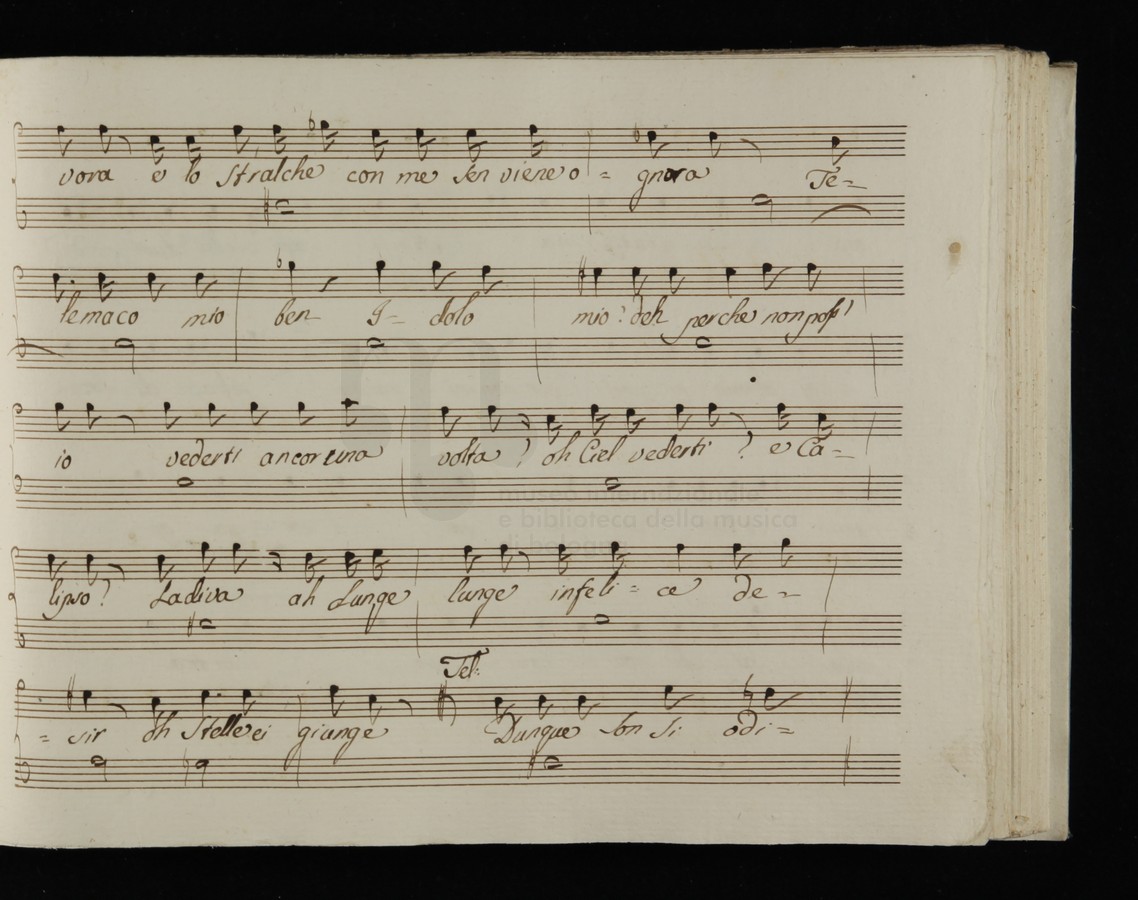 vora e lo Stral che con me sen viene o = gnora Te =
lemaco mio ben I = dolo mio? deh perche non poss'
io vederti ancor una volta? oh Ciel vederti? e Ca =
lipso? La diva ah Lunge lunge infeli = ce de =
Tel:
= sir oh Stelle ei giunge Dunque son si odi =
museo internazionale
e biblioteca della musica
di bologna